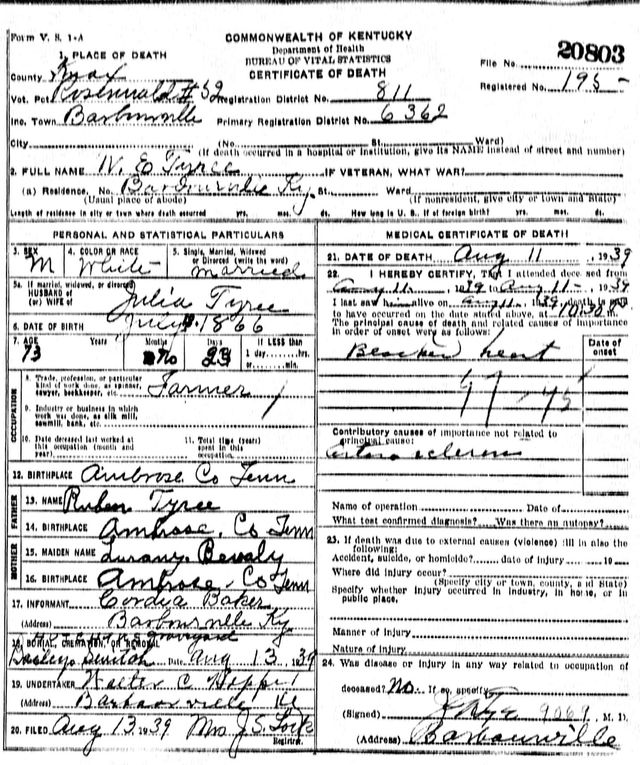 Form V. S. 1-A
COMMONWEALTH OF KENTUCKY
Department of Health
BUREAU OF VITAL STATISTICS
CERTIFICATE OF DEATH
File No. 20803
Registered No. 195-
1. PLACE OF DEATH
County Knox
Vot. Pct. Rosenwald #52 Registration District No. 811
Inc. Town Barbourville Primary Registration District No. 6362
City (No. St. Ward)
(If death occurred in a hospital or institution, give its NAME instead of street and number)
2. FULL NAME W. E Tyree IF VETERAN, WHAT WAR?
(a) Residence, No. Barbourville Ky. St. Ward
(Usual place of abode) (If nonresident, give city or town and State)
Length of residence in city or town where death occurred yrs. mos. ds. How long in U. S. if of foreign birth? yrs. mos. ds.
PERSONAL AND STATISTICAL PARTICULARS
3. SEX M
4. COLOR OR RACE White
5. Single, Married, Widowed or Divorced (write the word) Married
5a. If married, widowed, or divorced
HUSBAND of
(or) WIFE of Julia Tyree
6. DATE OF BIRTH July 1866
7. AGE 73 Years Months no Days 23
If LESS than
1 day hrs.
or min.
OCCUPATION
8. Trade, profession, or particular
kind of work done, as spinner,
sawyer, bookkeeper, etc. Farmer
9. Industry or business in which
work was done, as silk mill,
sawmill, bank, etc.
10. Date deceased last worked at
this occupation (month and
year)
11. Total time (years)
spent in this
occupation
12. BIRTHPLACE Ambrose Co Tenn
FATHER
13. NAME Ruben Tyree
14. BIRTHPLACE Ambrose, Co Tenn
MOTHER
15. MAIDEN NAME Bevaly
16. BIRTHPLACE Ambrose. Co Tenn
17. INFORMANT Cordia Baker
(Address) Barbourville Ky
18. BURIAL, CREMATION, OR REMOVAL graveyard
Date Aug 13 1939
19. UNDERTAKER Walter C Hopper
(Address) Barbourville Ky
20. FILED Aug 13 1939 Mrs J. S. Lock
Registrar.
MEDICAL CERTIFICATE OF DEATH
21. DATE OF DEATH Aug 11, 1939
22. I HEREBY CERTIFY, That I attended deceased from
Aug 11, 1939 to Aug 11-, 1939
I last saw him alive on Aug 11-, 1939, death is said
to have occurred on the date stated above, at 10:30
The principal cause of death and related causes of importance
in order of onset were as follows:
Date of
onset
heart
Contributory causes of importance not related to
principal cause:
Name of operation Date of
What test confirmed diagnosis? Was there an autopsy?
23. If death was due to external causes (violence) fill in also the
following:
Accident, suicide, or homicide? date of injury 19
Where did injury occur?
(Specify city or town, county, and State)
Specify whether injury occurred in industry, in home, or in
public place.
Manner of injury
Nature of injury
24. Was disease or injury in any way related to occupation of
deceased? No. If so, specify
(Signed) M. D.
(Address) Barbourville